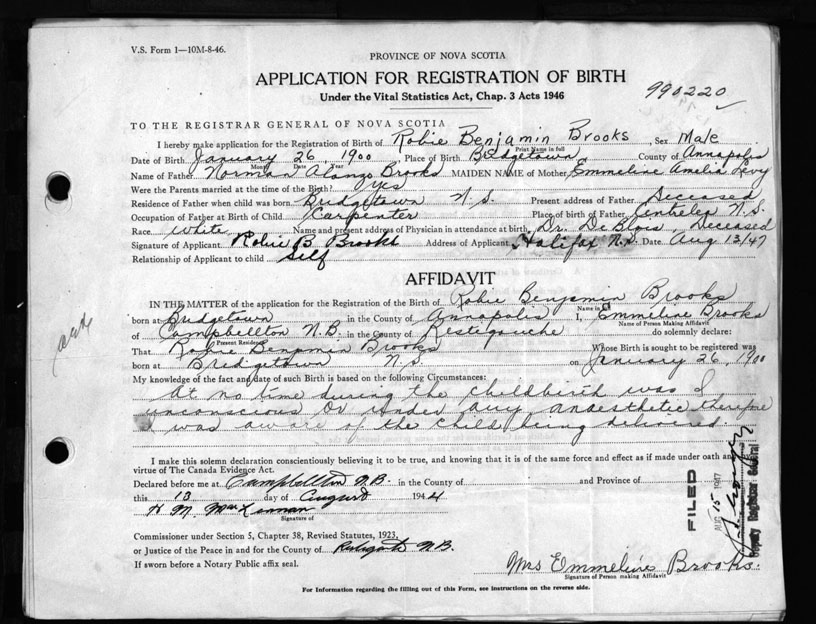 V.S. Form 1—10M-8-46.
PROVINCE OF NOVA SCOTIA
APPLICATION FOR REGISTRATION OF BIRTH
Under the Vital Statistics Act, Chap. 3 Acts 1946
990220
TO THE REGISTRAR GENERAL OF NOVA SCOTIA
I hereby make application for the Registration of Birth of Robie Benjamin Brooks, Sex Male
Print Name in full
Date of Birth January 26, 1900, Place of Birth Bridgetown, County of Annapolis
Month Date Year
Name of Father Norman Alonzo Brooks MAIDEN NAME of Mother Emmeline Amelia Levy
Were the Parents married at the time of the Birth? yes
Residence of Father when child was born Bridgetown N.S. Present address of Father Deceased
Occupation of Father at Birth of Child Carpenter Place of birth of Father N.S.
Race white Name and present address of Physician in attendance at birth Dr. DeBlois, Deceased
Signature of Applicant Robie B Brooks Address of Applicant Halifax N.S. Date Aug 13/47
Relationship of Applicant to child Self
AFFIDAVIT
IN THE MATTER of the application for the Registration of Birth of Robie Benjamin Brooks
Name in full
born at Bridgetown in the County of Annapolis I, Emmeline Brooks
Name of Person Making Affidavit
of Campbellton N.B. in the County of Restigouche do solemnly declare:
Present Residence
That Robie Benjamin Brooks Whose Birth is sought to be registered was
born at Bridgetown N.S. on January 26, 1900
My knowledge of the fact and date of such Birth is based on the following Circumstances:
At no time during the childbirth was I
unconscious or under any anaesthetic therefore
I was aware of the child being delivered.
I make this solemn declaration conscientiously believing it to be true, and knowing that it is of the same force and effect as if made under oath and
virtue of The Canada Evidence Act.
Declared before me at Campbellton N.B. in the County of and Province of
this 13 day of August 194
H. M. MacLennan
Signature of
Commissioner under Section 5, Chapter 38, Revised Statutes, 1923,
or Justice of the Peace in and for the County of N.B.
If sworn before a Notary Public affix seal.
Mrs Emmeline Brooks.
Signature of Person making Affidavit
For Information regarding the filling out of this Form, see instructions on the reverse side.
FILED
AUG 15 1947
Deputy Registrar General